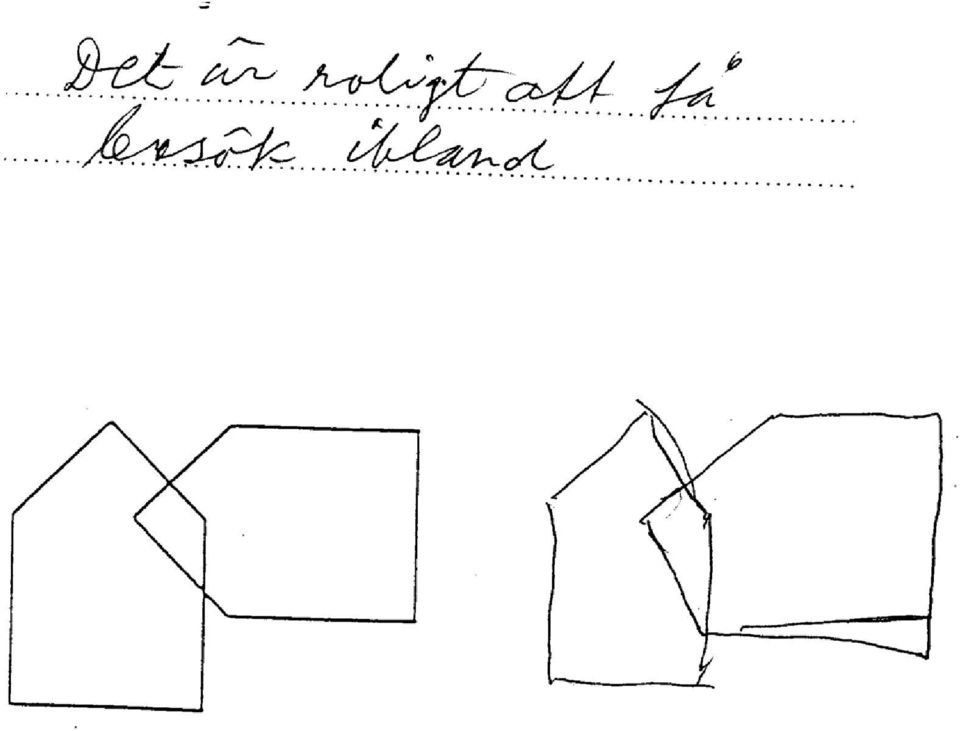 Det är roligt att få
besök ibland